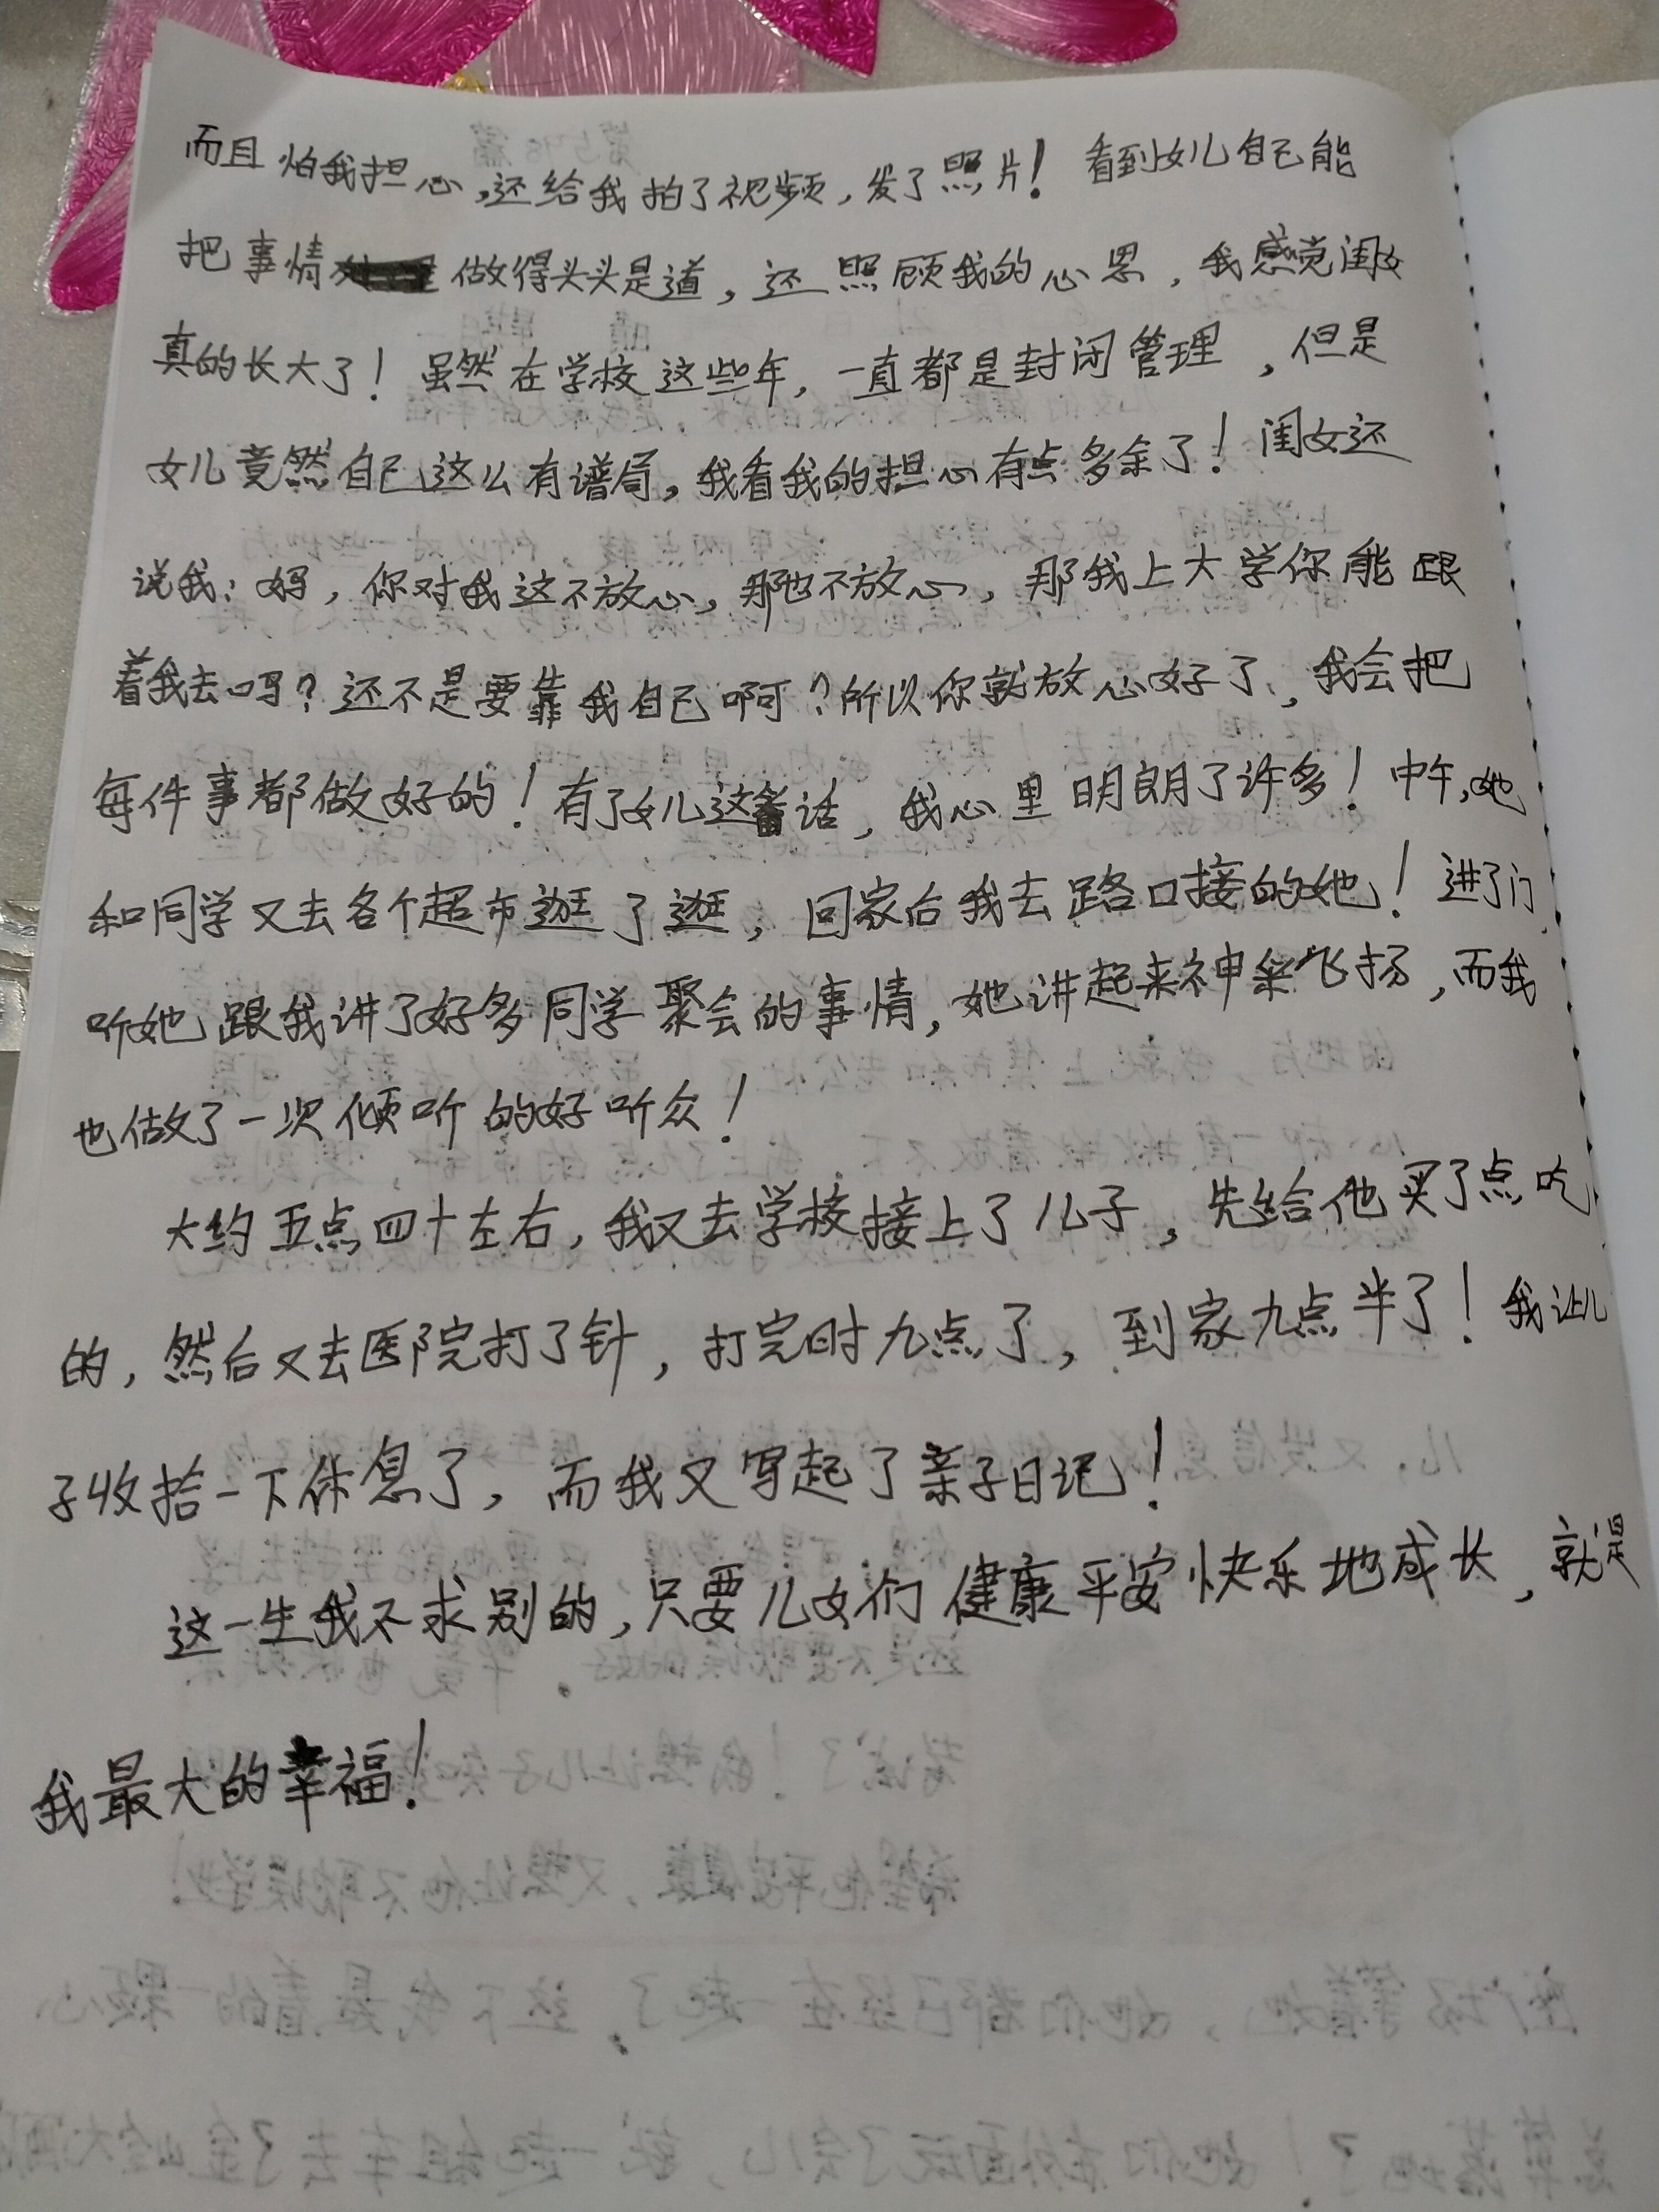 而且怕我担心,还给我拍了视频,发了照片!看到女儿自己能
把事情做得头头是道,还照顾我的心思,我感觉闺女
真的长大了!虽然在学校这些年,一直都是封闭管理,但是
女儿竟然自己这么有谱局,我看我的担心有点多余了!闺女还
说我:妈,你对我这不放心,那也不放心,那我上大学你能跟
着我去吗?还不是要靠我自己啊?所以你就放心好了,我会把
每件事都做好的!有了女儿这番话,我心里明朗了许多!中午,她
和同学又去各个超市逛了逛,回家后我去路口接的她!进了门,
听她跟我讲了好多同学聚会的事情,她讲起来神采飞扬,而我
也做了一次倾听的好听众!
大约五点四十左右,我又去学校接上了儿子,先给他买了点吃
的,然后又去医院打了针,打完时九点了,到家九点半了!我让儿
子收拾一下休息了,而我又写起了亲子日记!
这一生我不求别的,只要儿女们健康平安快乐地成长,就是
我最大的幸福!